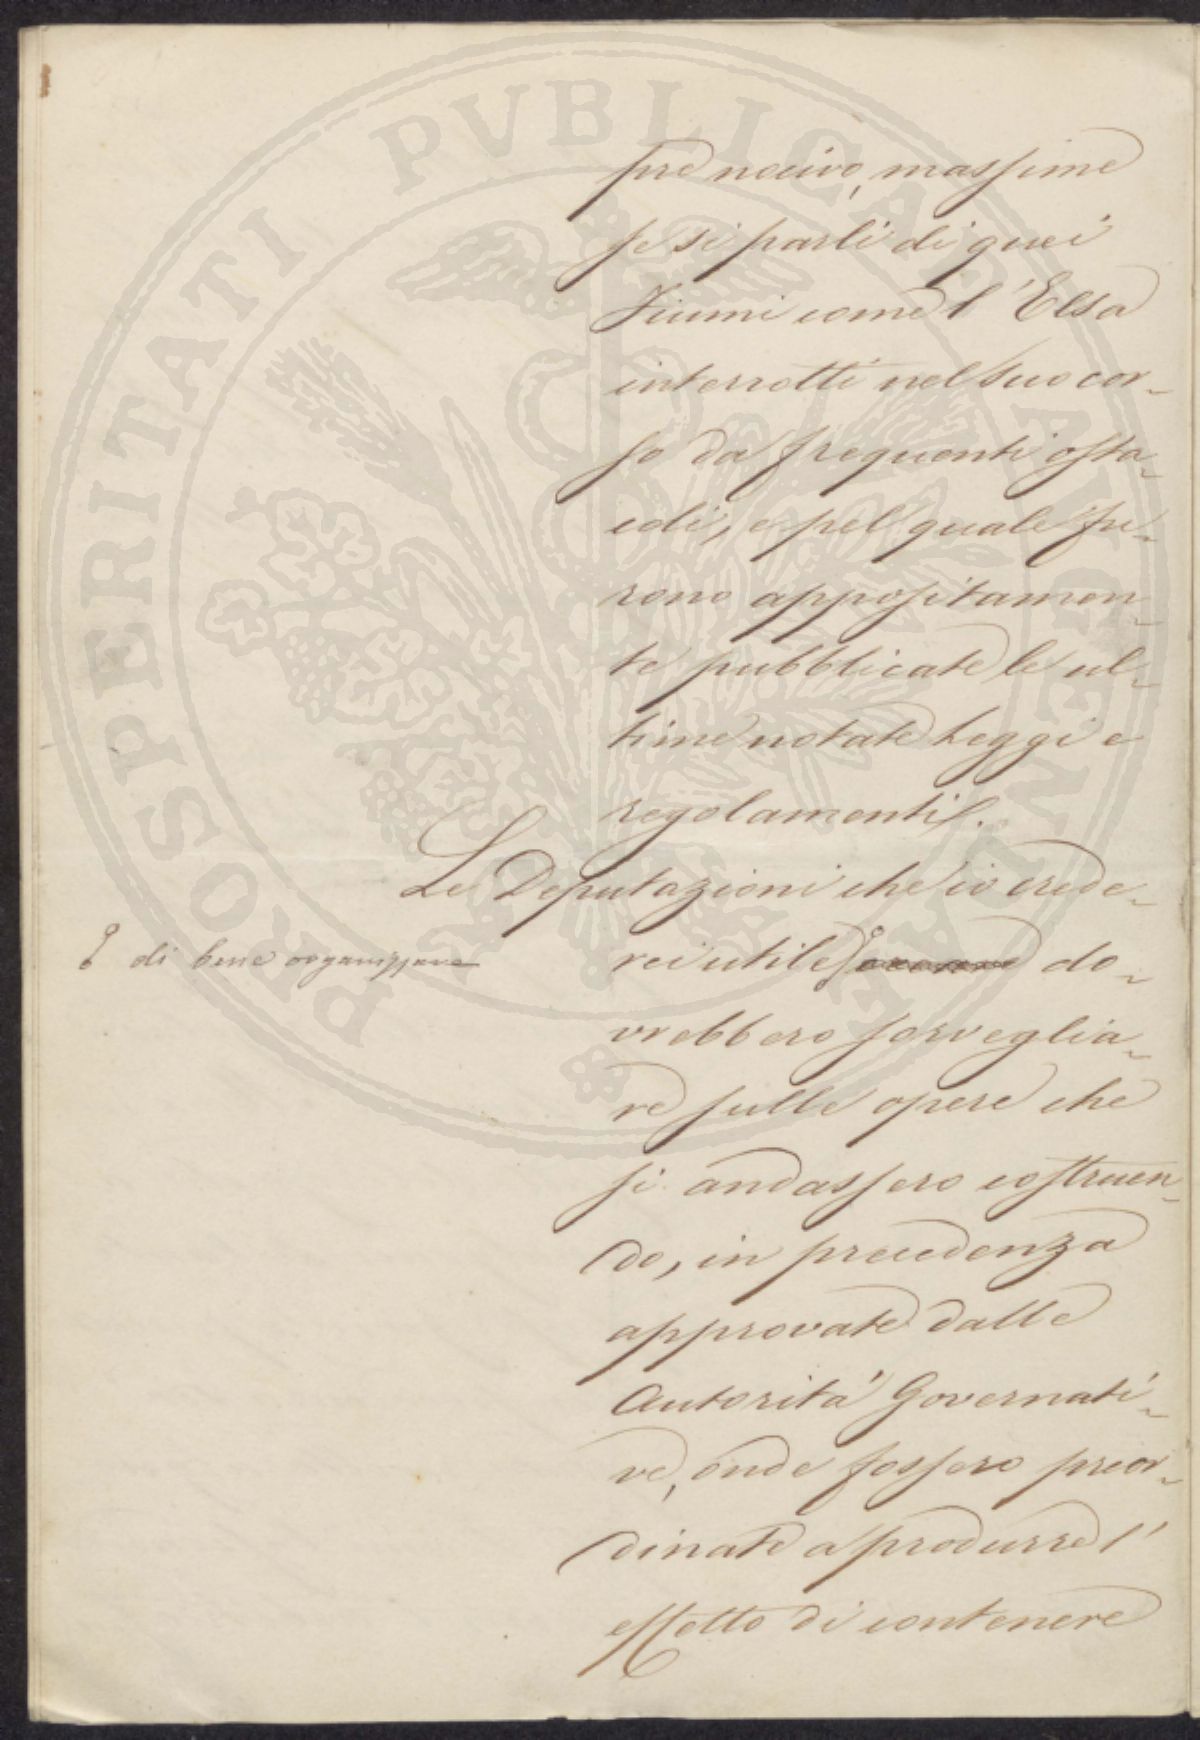 PROSPERITATI PVBLICAE AVGENDAE
pre nocivo, massime
se si parli di quei
Fiumi come l'Elsa
interrotti nel suo cor-
so da frequenti osta-
coli, e pel quale fu-
rono appositamen-
te pubblicate le ul-
time notate Leggi e
regolamenti.
Le Deputazioni che io crede-
di bene organizzare
rei utile do-
vrebbero sorveglia-
re sulle opere che
si andassero costruen-
do, in precedenza
approvate dalle
Autorità Governati-
ve, onde fossero preor-
dinate a produrre l'
effetto di contenere